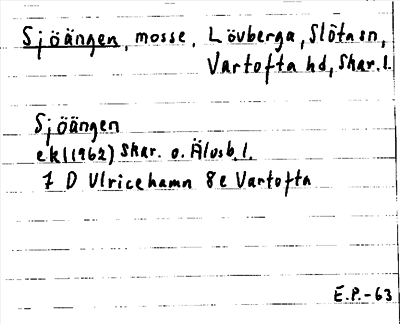 Sjöängen, mosse, Lövberga, Slöta sn,
Vartofta hd, Skar.l.
Sjöängen
ek(1962) Skar. o. Älvsb.l.
7 D Ulricehamn 8e Vartofta
E.P.-63